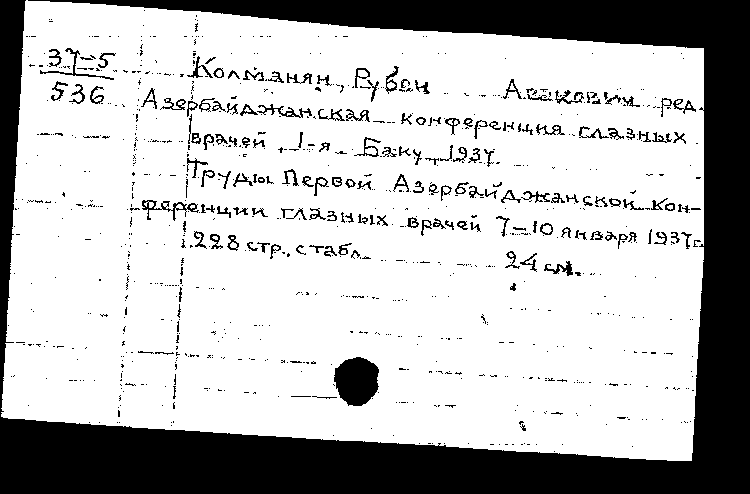 37-5
536
Колманян, Рубен Авакович ред.
Азербайджанская конференция глазных
врачей, 1-я. Баку, 1937.
Труды Первой Азербайджанской кон-
ференции глазных врачей 7-10 января 1937г.
228 стр., с табл. 24 см.